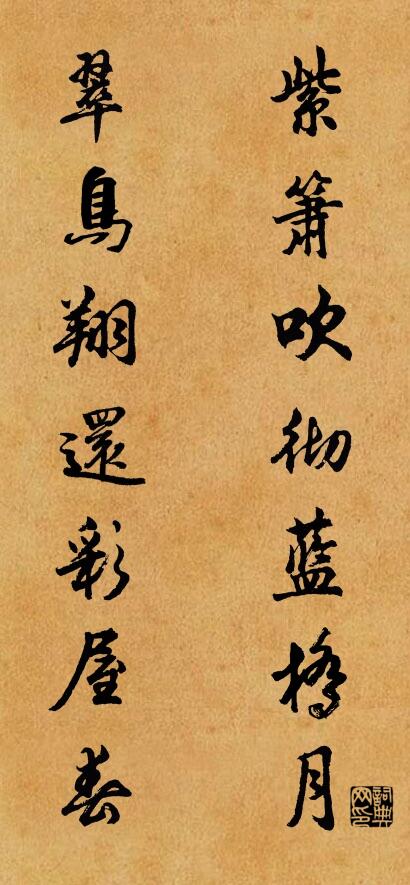 紫簫吹彻藍橋月
翠鳥翔還彩屋春
詞典网印